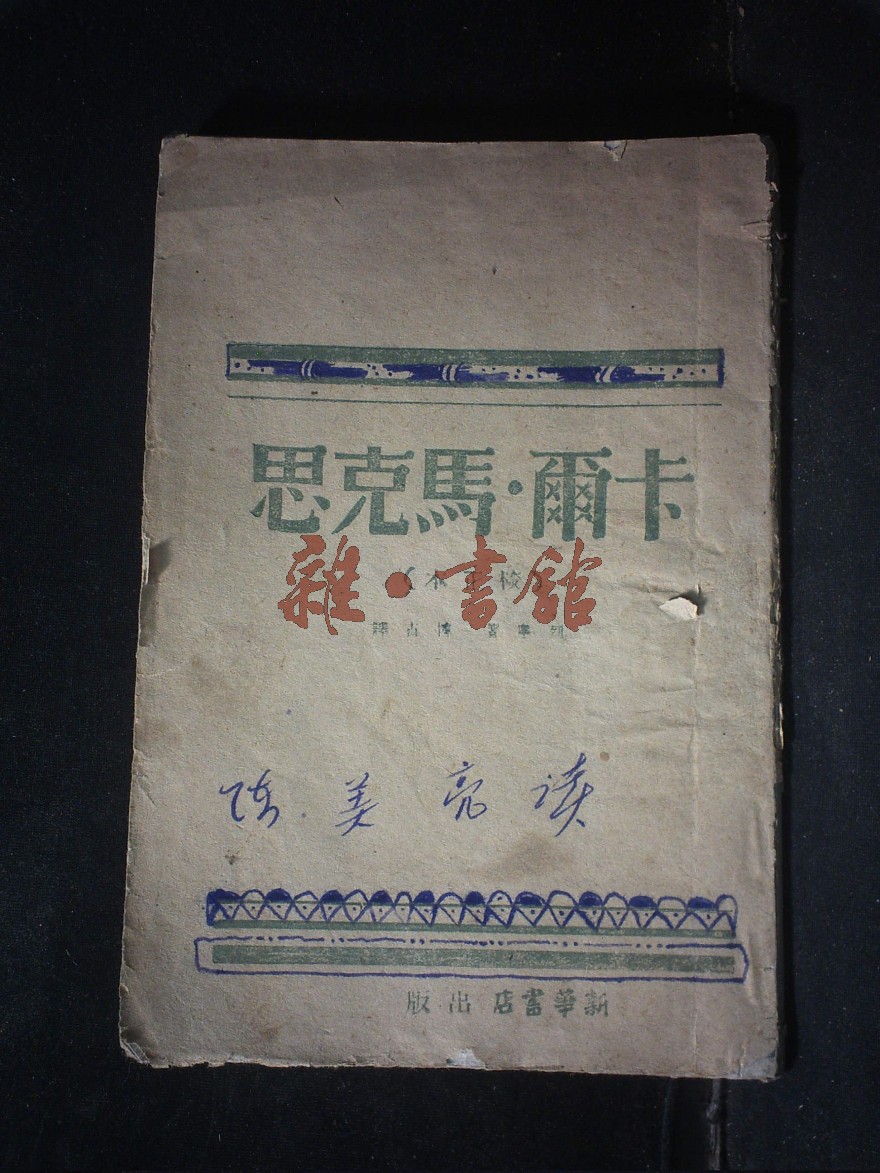 卡爾·馬克思
(校正本)
列寧著 博古譯
雜·書館
陈美亮读
新華書店出版